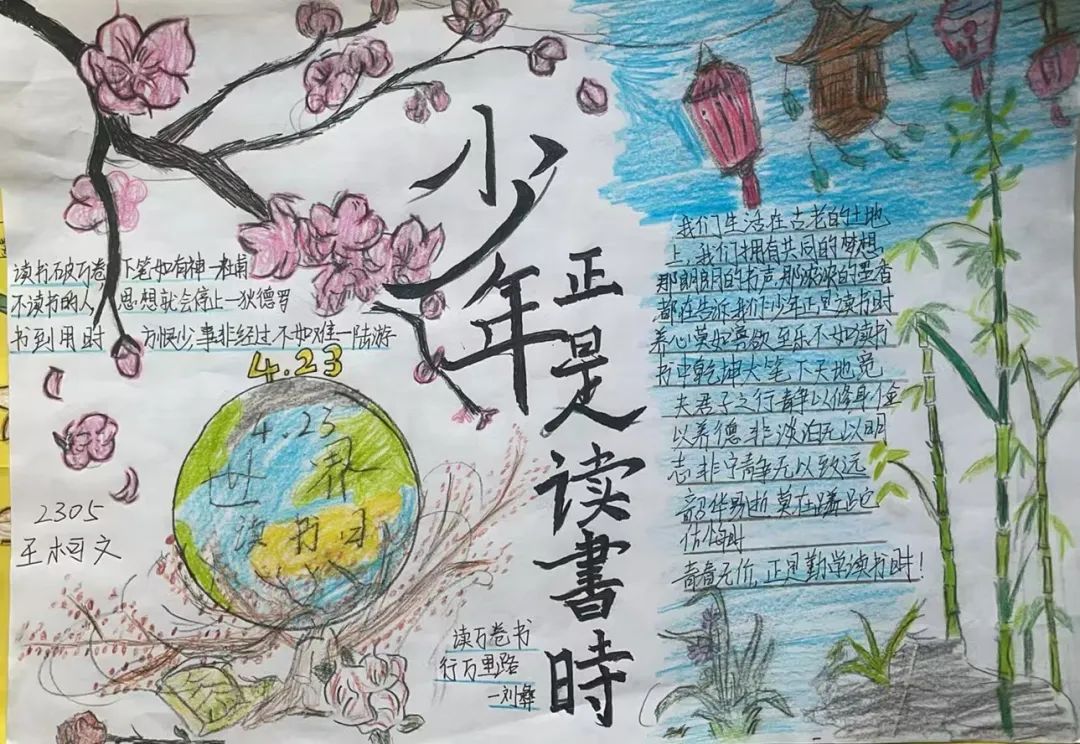 少年
正是读書時
读书破万卷 下笔如有神—杜甫
不读书的人，思想就会停止—狄德罗
书到用时 方恨少事非经过不如难—陆游
4.23
4.23
世界
读书日
2305
王柯文
读万卷书
行万里路
—刘彝
我们生活在古老的土地
上，我们拥有共同的梦想
那朗朗的书声，那淡淡的墨香
都在告诉我们少年正是读书时
养心莫如寡欲 至乐不如读书
书中乾坤大笔下天地宽
夫君子之行静以修身俭
以养德非淡泊无以明
志非宁静无以致远
韶华易逝 莫在蹉跎
青春无价，正是勤学读书时！